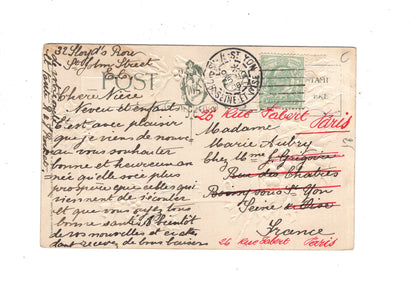 32 Lloyd's Row
St John Street
E.C.
POST
Chère Nièce
Neveu et enfants
C'est avec plaisir
que je viens de nouv-
au vous souhaiter
bonne et heureuse an-
née qu'elle soie plus
prospère que celles qui
viennent de s'écouler
et que vous ayez tous
bonne santé. Bientôt
de vos nouvelles et
dans recevez de bons baisers
26 Rue Fabert Paris
Madame
Marie Aubry
Chez Mme Grégoire
Rue des Chatres
Boissy sous St Yon
Seine & Oise
France
26 Rue Fabert Paris